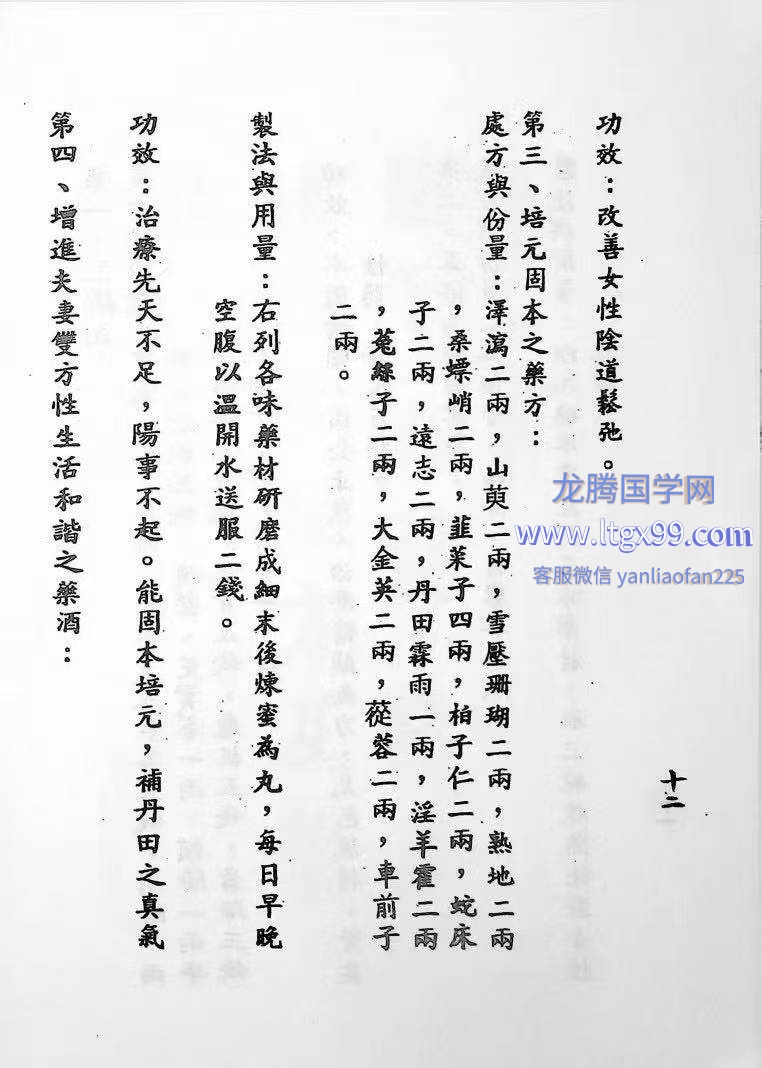 功效：改善女性陰道鬆弛。
第三、培元固本之藥方：
處方與份量：澤瀉二兩，山萸二兩，雪壓珊瑚二兩，熟地二兩
，桑螵峭二兩，韭菜子四兩，柏子仁二兩，蛇床
子二兩，遠志二兩，丹田霖雨一兩，淫羊霍二兩
，菟絲子二兩，大金英二兩，蓯蓉二兩，車前子
二兩。
製法與用量：右列各味藥材研磨成細末後煉蜜為丸，每日早晚
空腹以溫開水送服二錢。
功效：治療先天不足，陽事不起。能固本培元，補丹田之真氣
第四、增進夫妻雙方性生活和諧之藥酒：
十二
龙腾国学网
www.ltgx99.com
客服微信 yanliaofan225